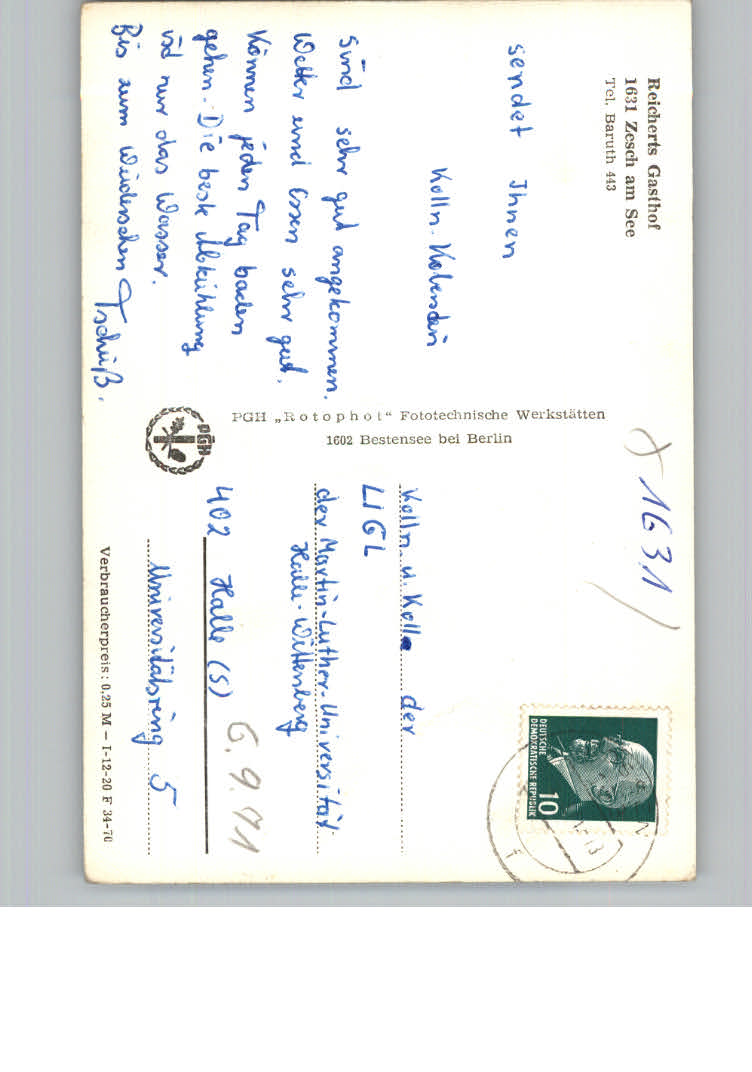 Reicherts Gasthof
1631 Zesch am See
Tel. Baruth 443
sendet Ihnen
Kolln.
sind sehr gut angekommen.
Wetter und Essen sehr gut.
Können jeden Tag baden
gehen. Die beste Abkühlung
ist nur das Wasser.
Bis zum Wiedersehen Tschüß.
PGH „Rotophot“ Fototechnische Werkstätten
1602 Bestensee bei Berlin
PGH
1631
DEUTSCHE
DEMOKRATISCHE REPUBLIK
10
Kolln. u. Koll. der
LIGL
der Martin-Luther-Universität
Halle-Wittenberg
402 Halle (S)
Universitätsring 5
6.9.71
Verbraucherpreis: 0,25 M — I-12-20 F 34-70